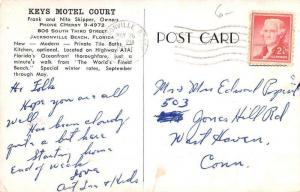 KEYS MOTEL COURT
Frank and Nita Skipper, Owners
Phone CHerry 9-4972
806 SOUTH THIRD STREET
JACKSONVILLE BEACH, FLORIDA
New - Modern - Private Tile Baths,
Kitchens, optional. Located on Highway A1A,
Florida's Oceanfront thoroughfare,
minute's walk from "The World's Finest
Beach." Special winter rates, September
through May.
POST CARD
6-
2¢
Hi Folks
Hope you are all
well.
Has been cloudy
quite a bit here
Starting home
End of week
Love
Art Inn & Kids
Mr & Mrs Edward
503
Jones Hill Rd
West Haven,
Conn.